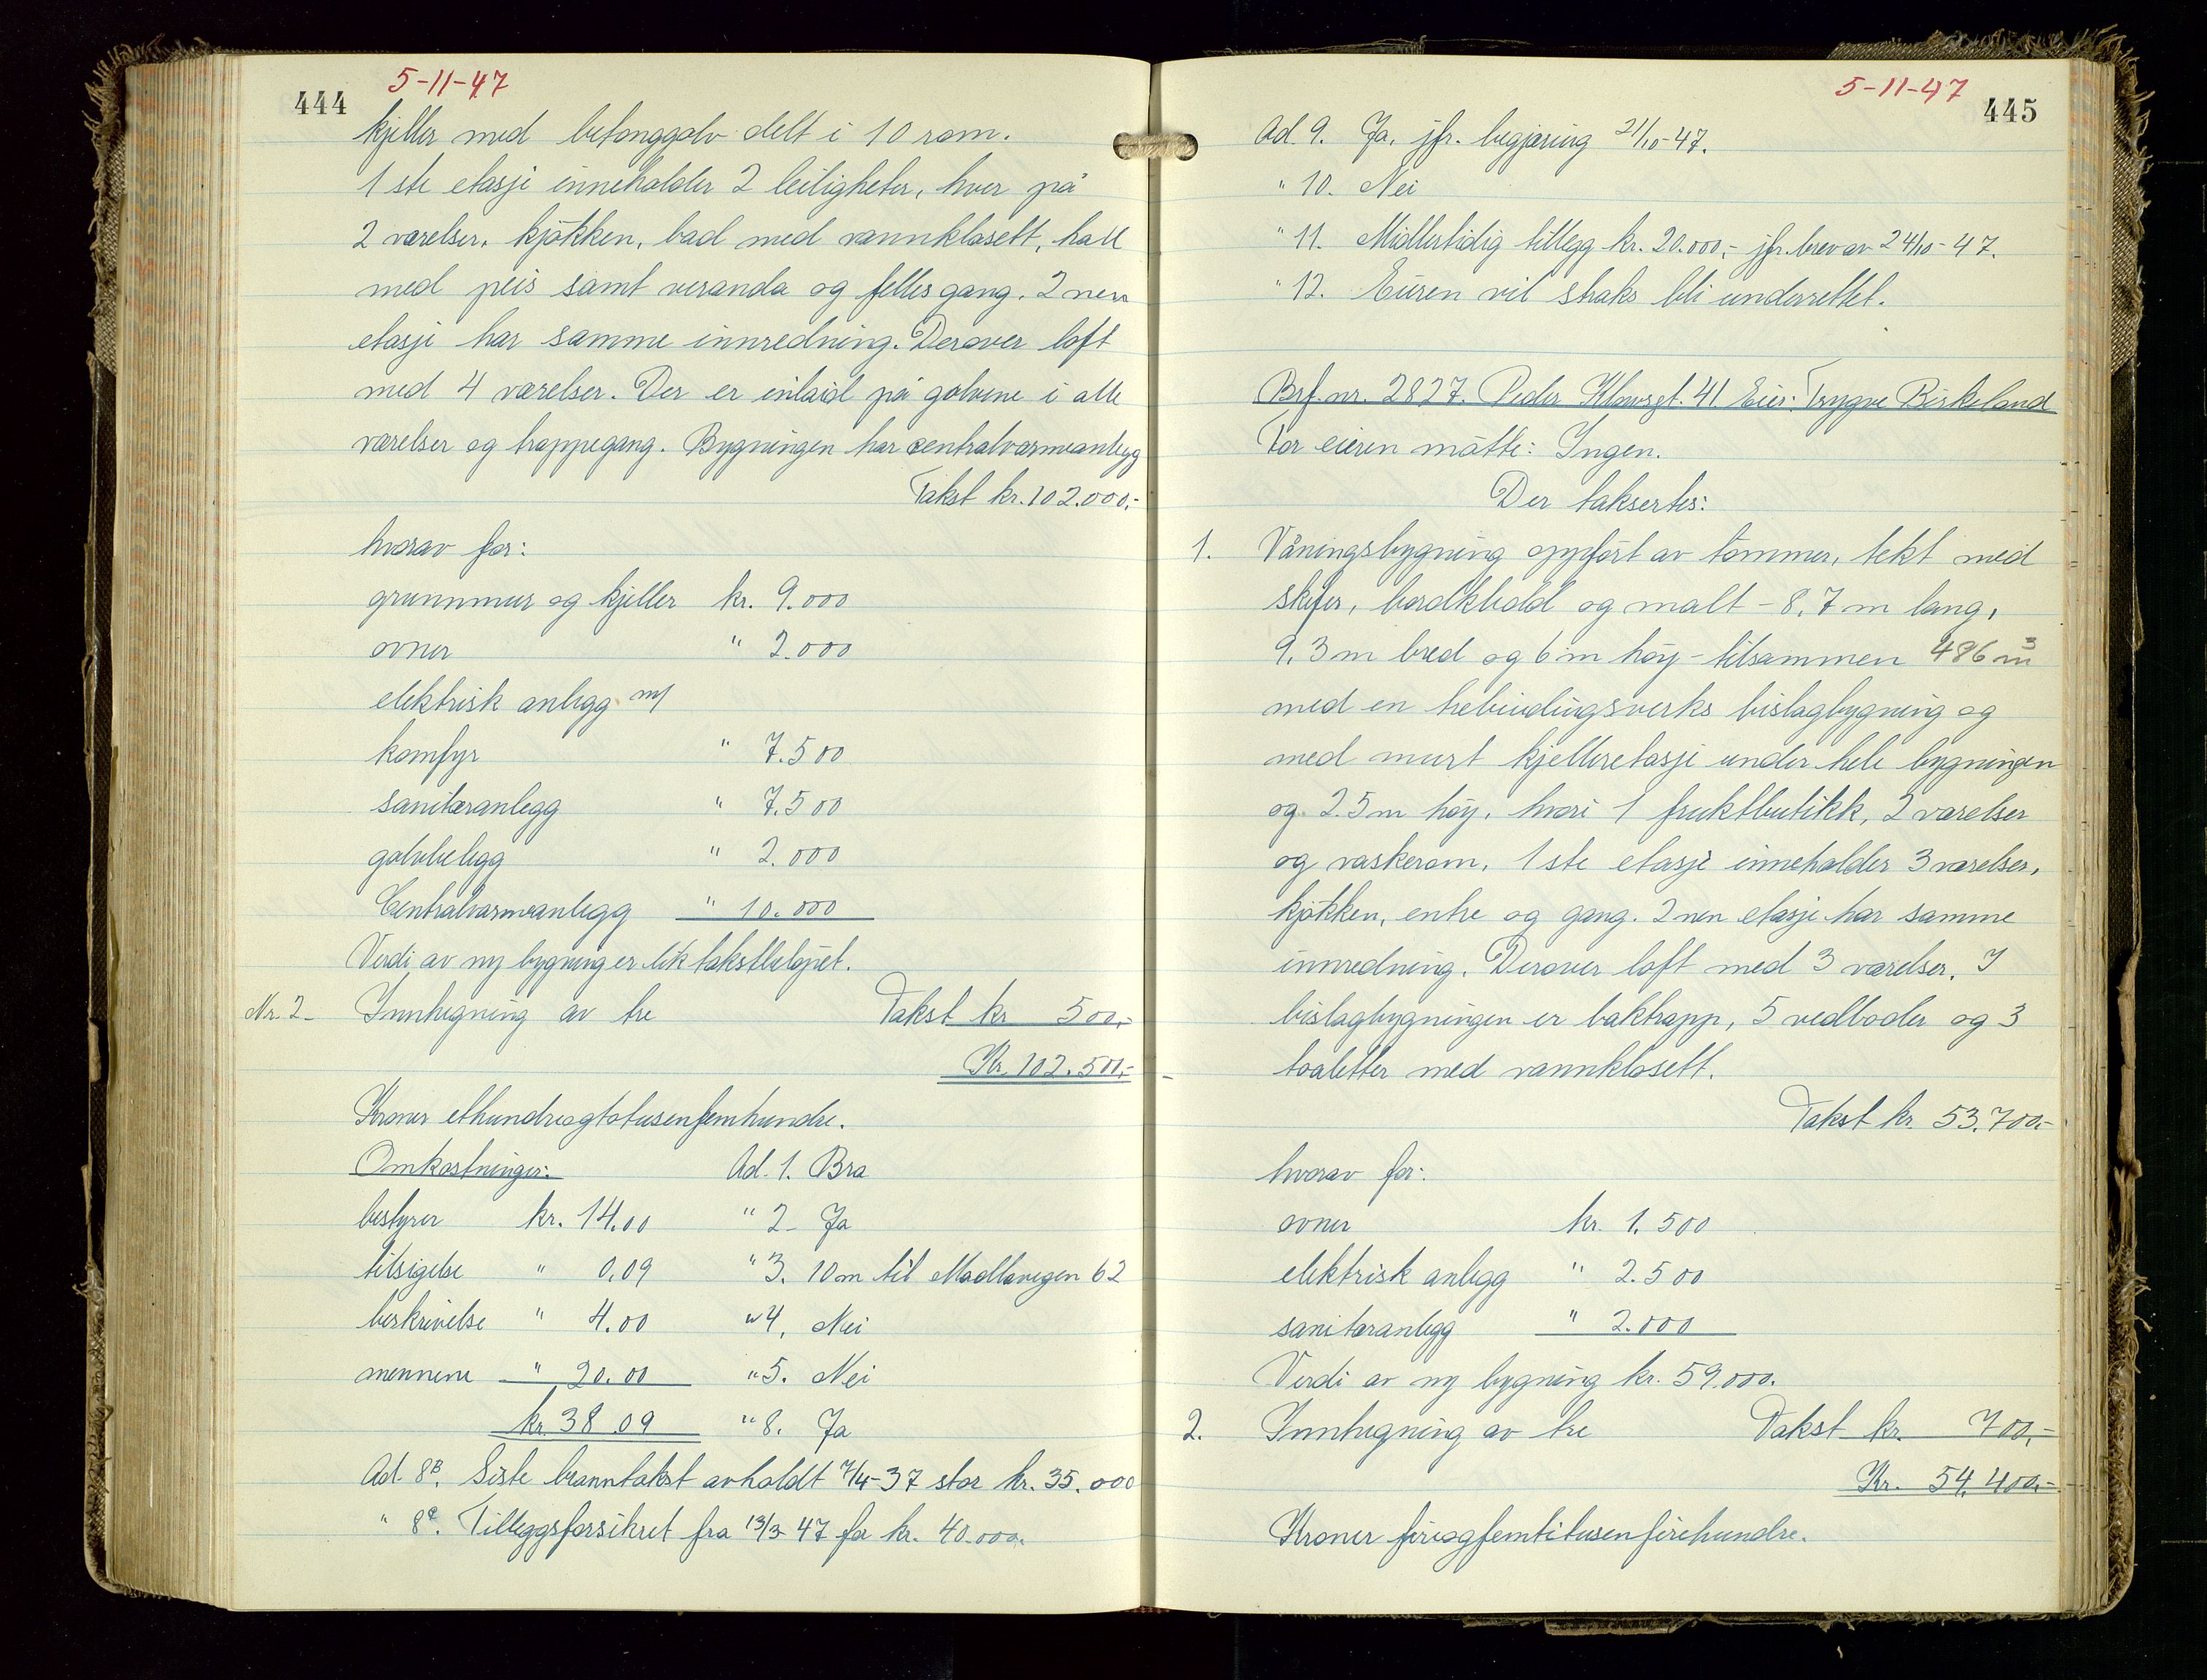 444
5-11-47
kjeller med betonggolv delt i 10 rom.
1ste etasje inneholder 2 leiligheter, hver på
2 værelser, kjökken, bad med vannklosett, hall
med peis samt veranda og felles gang. 2nen
etasje har samme innredning. Derover loft
med 4 værelser. Der er inlaid på golvene i alle
værelser og trappegang. Bygningen har centralvarmeanlegg
Takst kr. 102.000,-
hvorav for:
grunnmur og kjeller kr. 9.000
ovner " 2.000
elektrisk anlegg m/
komfyr " 7.500
sanitæranlegg " 7.500
golvbelegg " 2.000
Centralvarmeanlegg " 10.000
Verdi av ny bygning er lik takstbeløpet.
Nr. 2- Innhegning av tre Takst kr 500,-
Kr. 102.500,-
Kroner ethundreogtotusenfemhundre.
Omkostninger: Ad. 1. Bra
bestyrer kr. 14.00 " 2- Ja
tilsigelse " 0,09 " 3. 10m til Madlaveigen 62
beskrivelse " 4.00 " 4. Nei
mennene " 20.00 " 5. Nei
kr. 38.09 " 8. Ja
Ad 8B. Siste branntakst avholdt 7/4-37 stor kr. 35.000
" 8c. Tilleggsforsikret fra 13/3-47 for kr. 40.000.
5-11-47
445
Ad. 9. Ja. jfr. begjæring 21/10-47.
" 10. Nei
" 11. Midlertidig tillegg kr. 20.000,- jfr. brev av 24/10-47.
" 12. Eieren vil straks bli underrettet.
Brf. nr. 2827. Peder Klowsgt. 41. Eier: Trygve Birkeland
For eieren mötte: Ingen.
Der taksertes:
1. Våningsbygning oppfört av tömmer, tekt med
skifer, bordkledd og malt - 8,7 m lang,
9,3 m bred og 6 m höy - tilsammen 486 m3
med en hebindingsverks bislagbygning og
med murt kjelleretasje under hele bygningen
og 2.5m höy, hvori 1 fruktbutikk, 2 værelser
og vaskerom. 1ste etasje inneholder 3 værelser,
kjökken, entre og gang. 2nen etasje har samme
innredning. Derover loft med 3 værelser. I
bislagbygningen er baktrapp, 5 vedboder og 3
toaletter med vannklosett.
Takst kr. 53.700,-
hvorav for:
ovner kr. 1.500
elektrisk anlegg " 2.500
sanitæranlegg " 2.000
Verdi av ny bygning kr. 59.000.
2. Innhegning av tre Takst kr. 700,-
Kr. 54.400,-
Kroner fireogfemtitusenfirehundre.